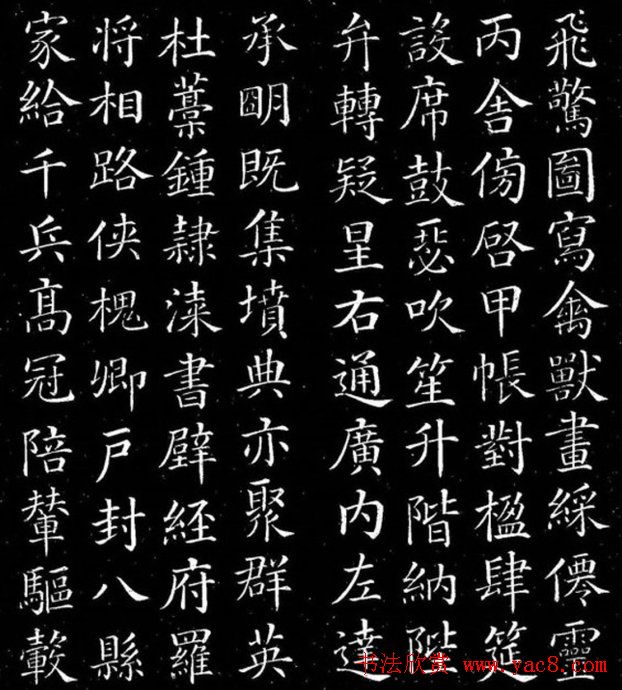 飛驚圖寫禽獸畫綵僊靈
丙舍傍啓甲帳對楹肆筵
設席鼓瑟吹笙升階納陛
弁轉疑星右通廣内左達
承朙既集墳典亦聚群英
杜藁鍾隸漆書壁経府羅
将相路俠槐卿戶封八縣
家給千兵髙冠陪輦驅轂
书法欣赏 www.yac8.com